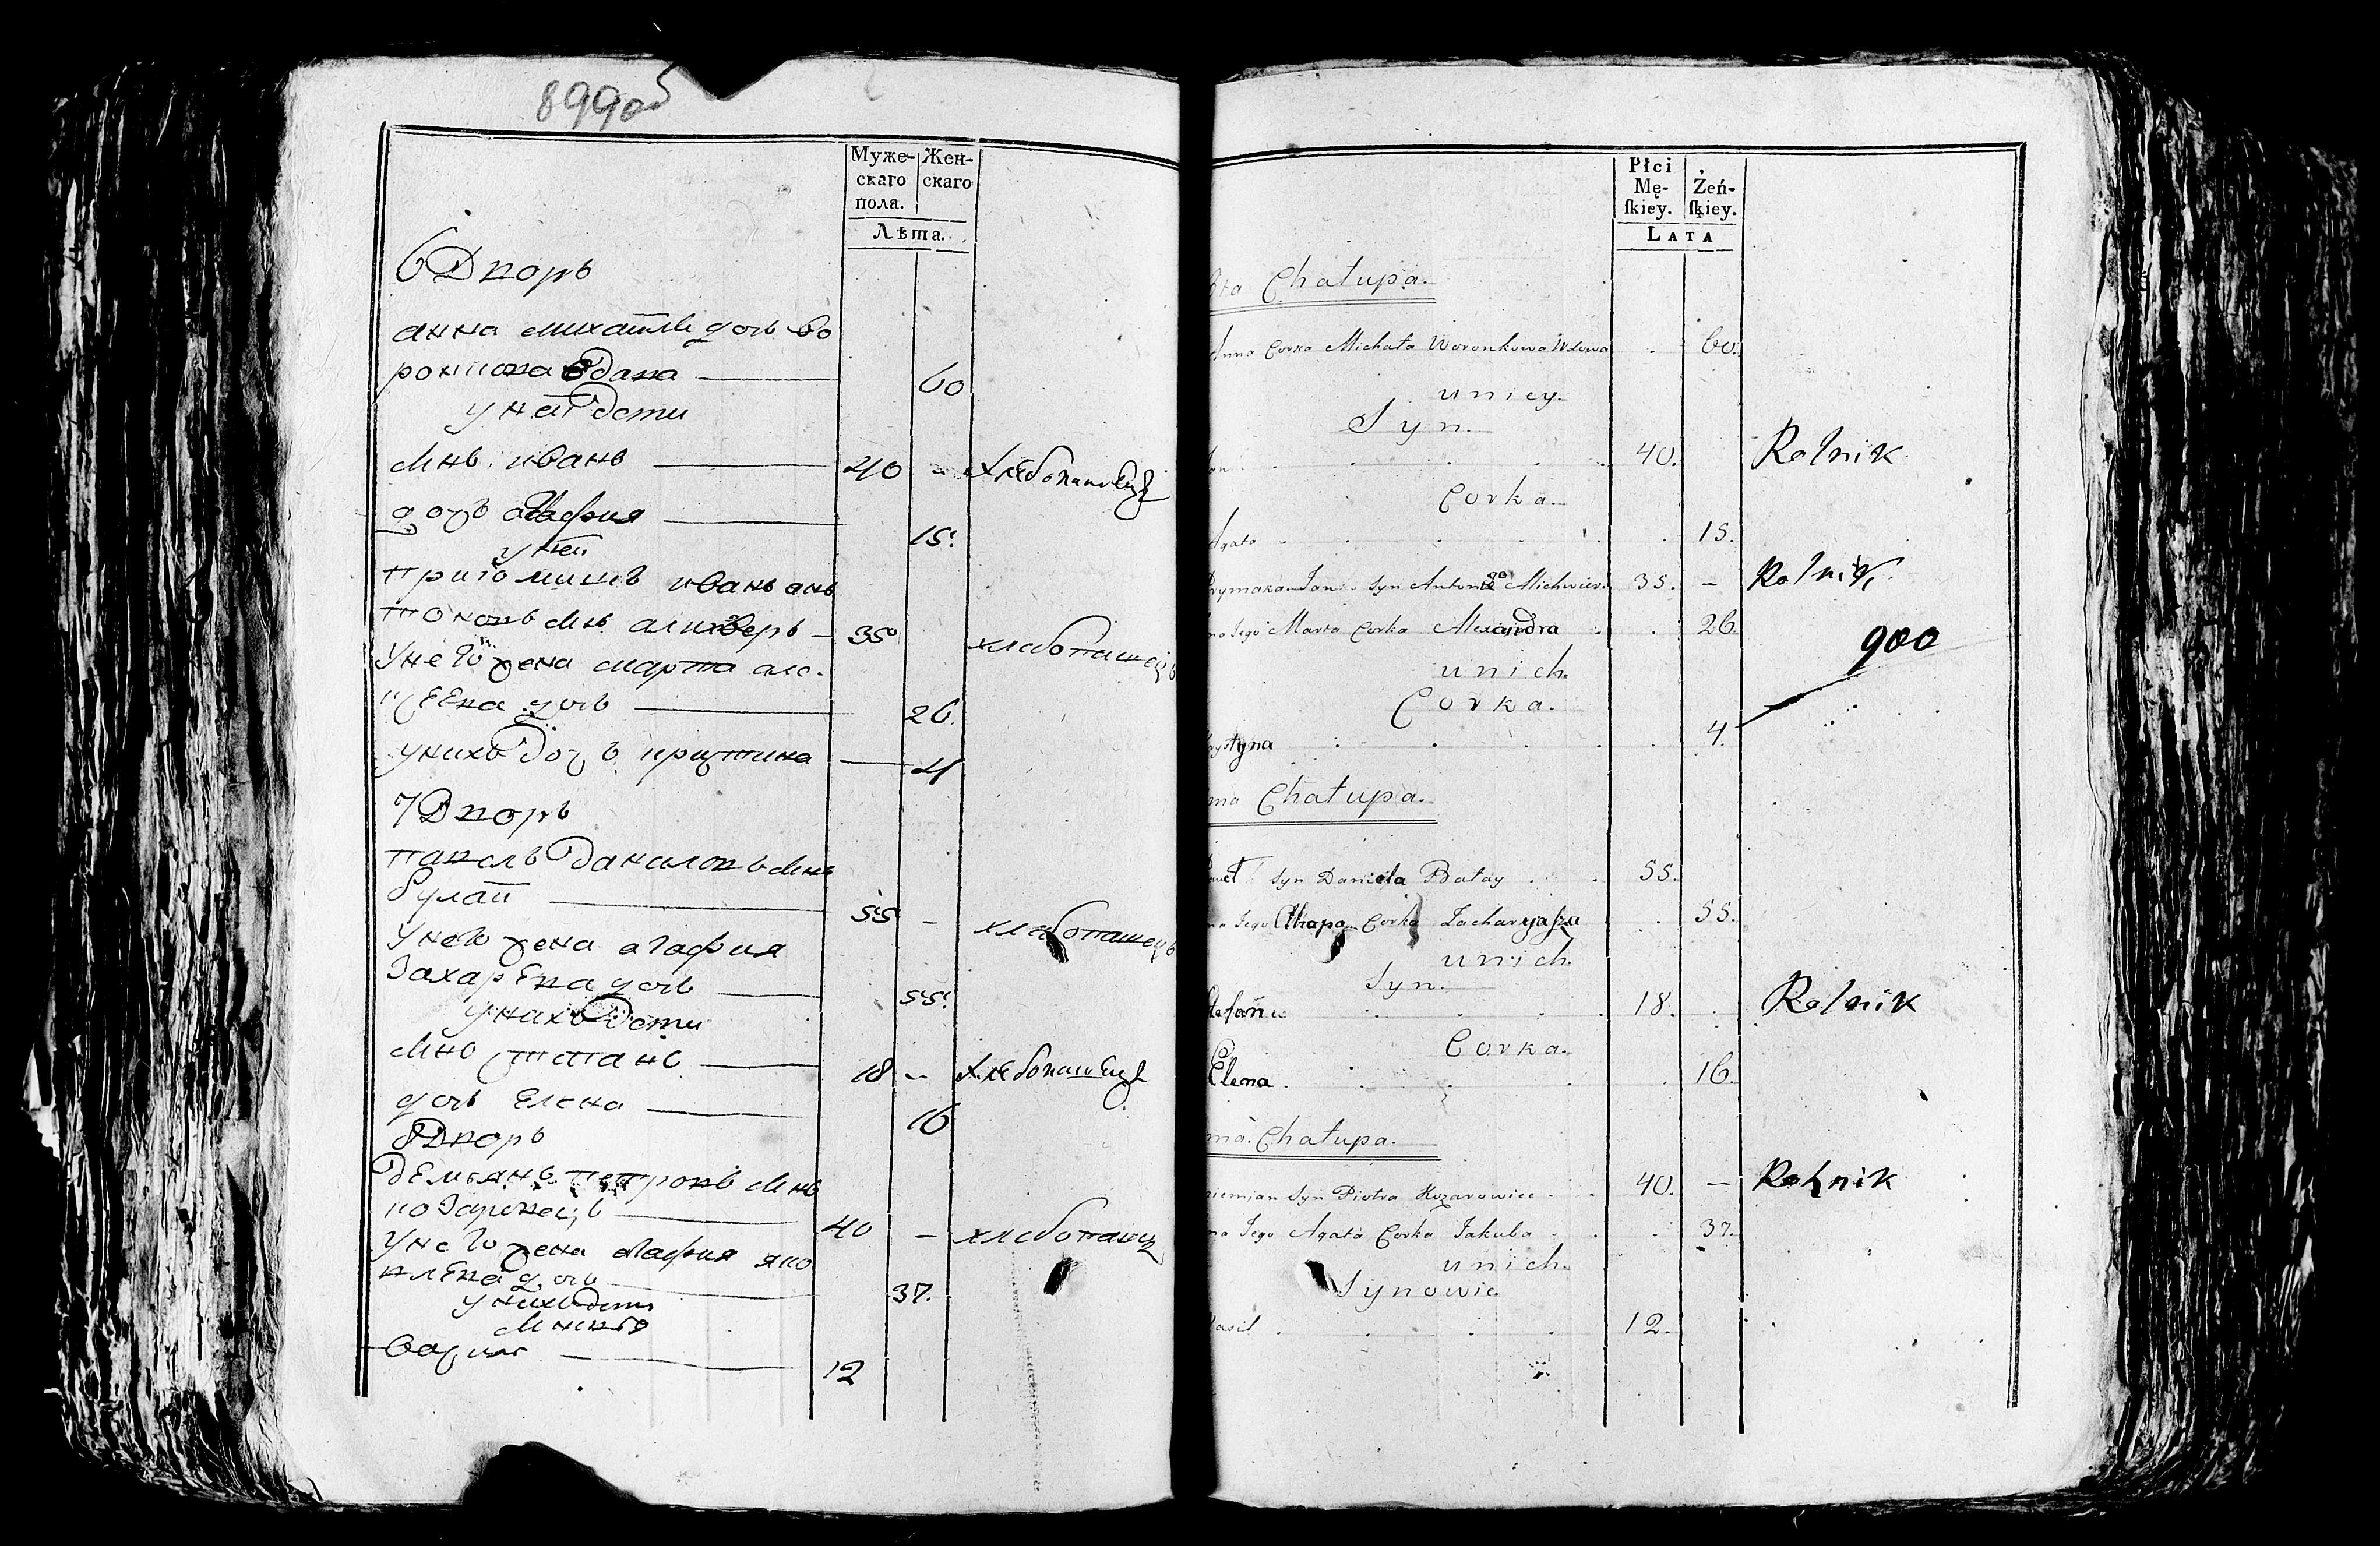 899об
Муже- Жен-
скаго скаго
пола.
Лѣта.
6 Дворъ
анна михайле дочь во
ронкова вдава 60
у ней дети
Снъ иванъ 40 - Хлебопашецъ
дочъ агафия 15
у ней
приюмишъ иванъ ань
тоновъ снъ 35 хлебопашецъ
у него жена марта але.
дочь 26.
у нихъ дочъ криштина 4
7 Дворъ
павелъ даниловъ снъ
булай 55 - хлебопашецъ
у него жена агафия
Захарева дочь 55
у нихъ дети
Снъ степанъ 18 - Хлебопашецъ
дочь Елена 16
8 Дворъ
демьянъ петровъ снъ
козаровецъ 40 - хлебопашецъ
у него жена агафия яко
влева дочь 37.
у нихъ дети
Сыновья
василь 12
Płci
Mę- Żeń-
ſkiey. ſkiey.
LATA
Chałupa.
Anna Corka Michała Woronkowa Wdowa . 60.
u niey
Syn.
40. Rolnik
Corka.
Agata 15.
Prymaka Jan Syn Antoniego 35. - Rolnik
Jego Marta Corka Alexandra 26.
900
u nich.
Corka.
rystyna 4.
Chałupa.
Syn Daniela Bałay 55.
Jego Ahapa Corka Zacharyasza 55.
u nich.
Syn.
Stefan 18. Rolnik
Corka.
Elena 16.
Chałupa.
iemian Syn Piotra Kozarowiec 40. - Rolnik
Jego Agata Corka Jakuba 37.
u nich.
Synowie
Wasil 12.